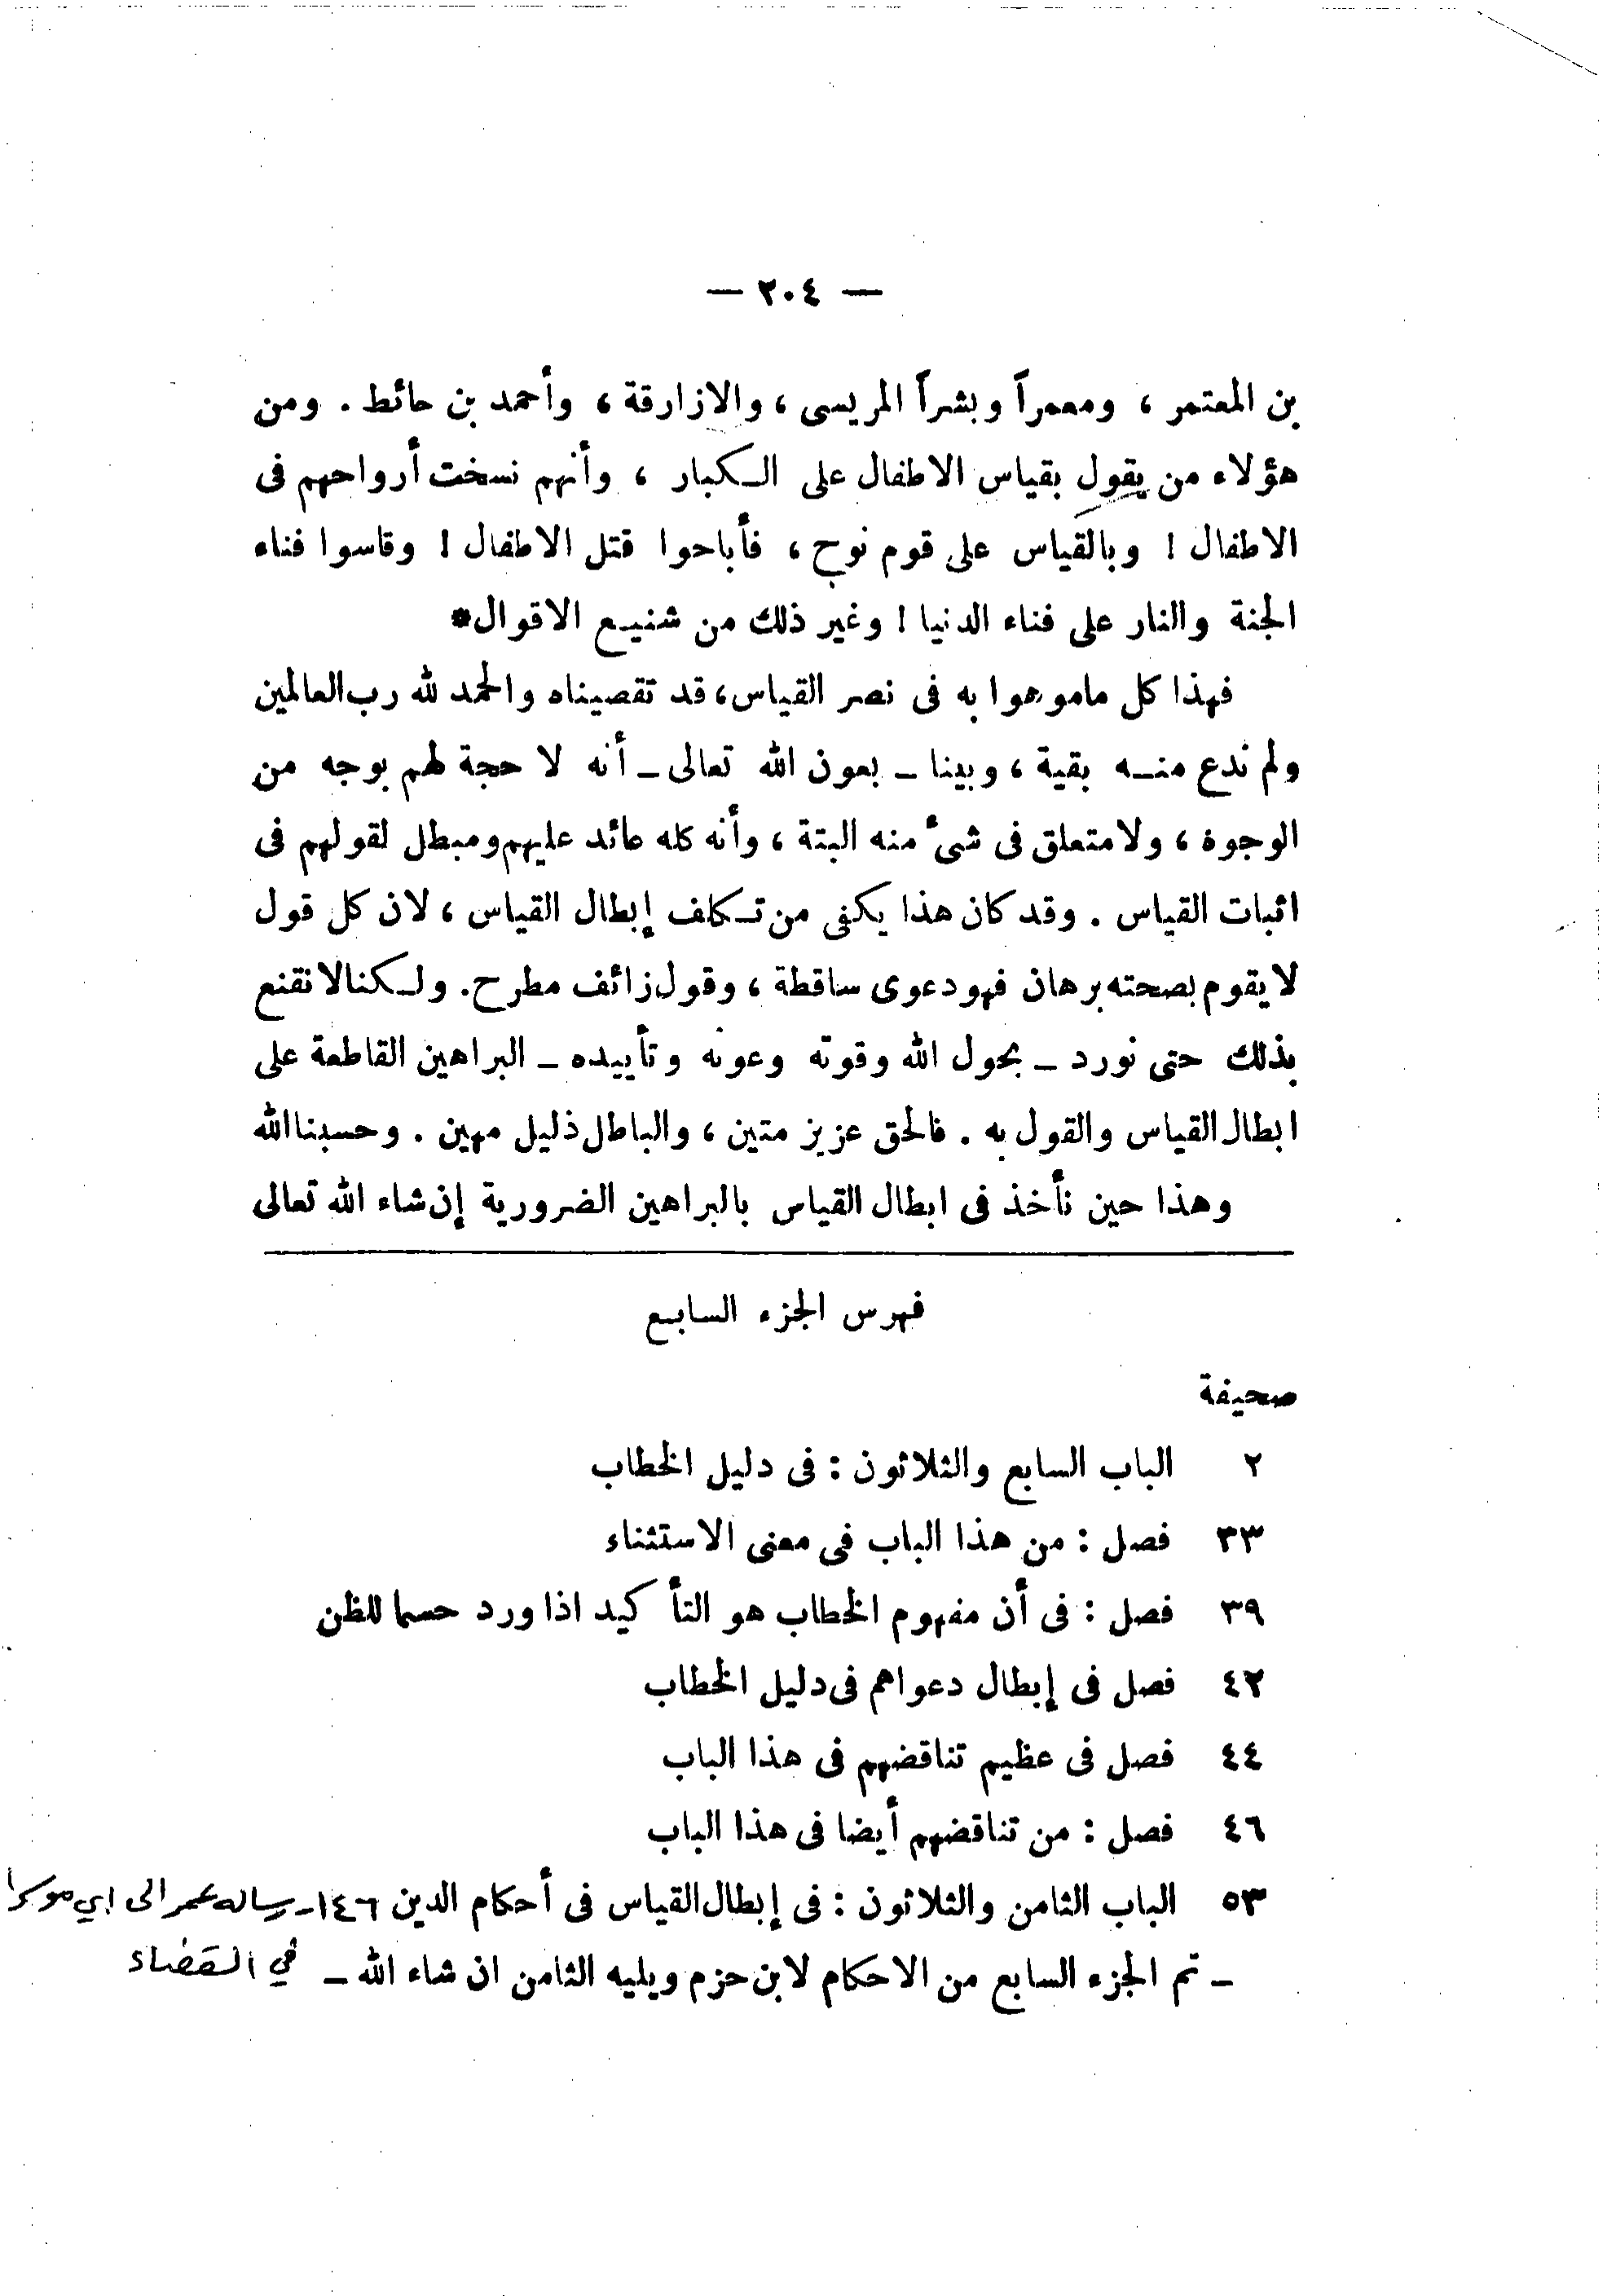 — ٢٠٤ —
بن المعتمر ، ومعمراً وبشراً المريسى ، والازارقة ، وأحمد بن حائط . ومن
هؤلاء من يقول بقياس الاطفال على الـكبار ، وأنهم نسخت أرواحهم فى
الاطفال ! وبالقياس على قوم نوح ، فأباحوا قتل الاطفال ! وقاسوا فناء
الجنة والنار على فناء الدنيا ! وغير ذلك من شنيـع الاقوال*
فهذا كل ماموهوا به فى نصر القياس ، قد تقصيناه والحمد لله رب العالمين
ولم ندع منـه بقية ، وبينا ـ بعون الله تعالى ـ أنه لا حجة لهم بوجه من
الوجوه ، ولا متعلق فى شئ منه البتة ، وأنه كله عائد عليهم ومبطل لقولهم فى
اثبات القياس . وقد كان هذا يكفى من تـكلف إبطال القياس ، لان كل قول
لا يقوم بصحته برهان فهو دعوى ساقطة ، وقول زائف مطرح . ولـكنا لا نقنع
بذلك حتى نورد ـ بحول الله وقوته وعونه وتأييده ـ البراهين القاطعة على
ابطال القياس والقول به . فالحق عزيز متين ، والباطل ذليل مهين . وحسبنا الله
وهذا حين نأخذ فى ابطال القياس بالبراهين الضرورية إن شاء الله تعالى
فهرس الجزء السابـع
صحيفة
٢ الباب السابع والثلاثون : فى دليل الخطاب
٣٣ فصل : من هذا الباب فى معنى الاستثناء
٣٩ فصل : فى أن مفهوم الخطاب هو التأكيد اذا ورد حسما للظن
٤٢ فصل فى إبطال دعواهم فى دليل الخطاب
٤٤ فصل فى عظيم تناقضهم فى هذا الباب
٤٦ فصل : من تناقضهم أيضا فى هذا الباب
٥٣ الباب الثامن والثلاثون : فى إبطال القياس فى أحكام الدين ١٤٦ـ رسالة عمر الى ابي موسى
ـ تم الجزء السابع من الاحكام لابن حزم ويليه الثامن ان شاء الله ـ في القضاء